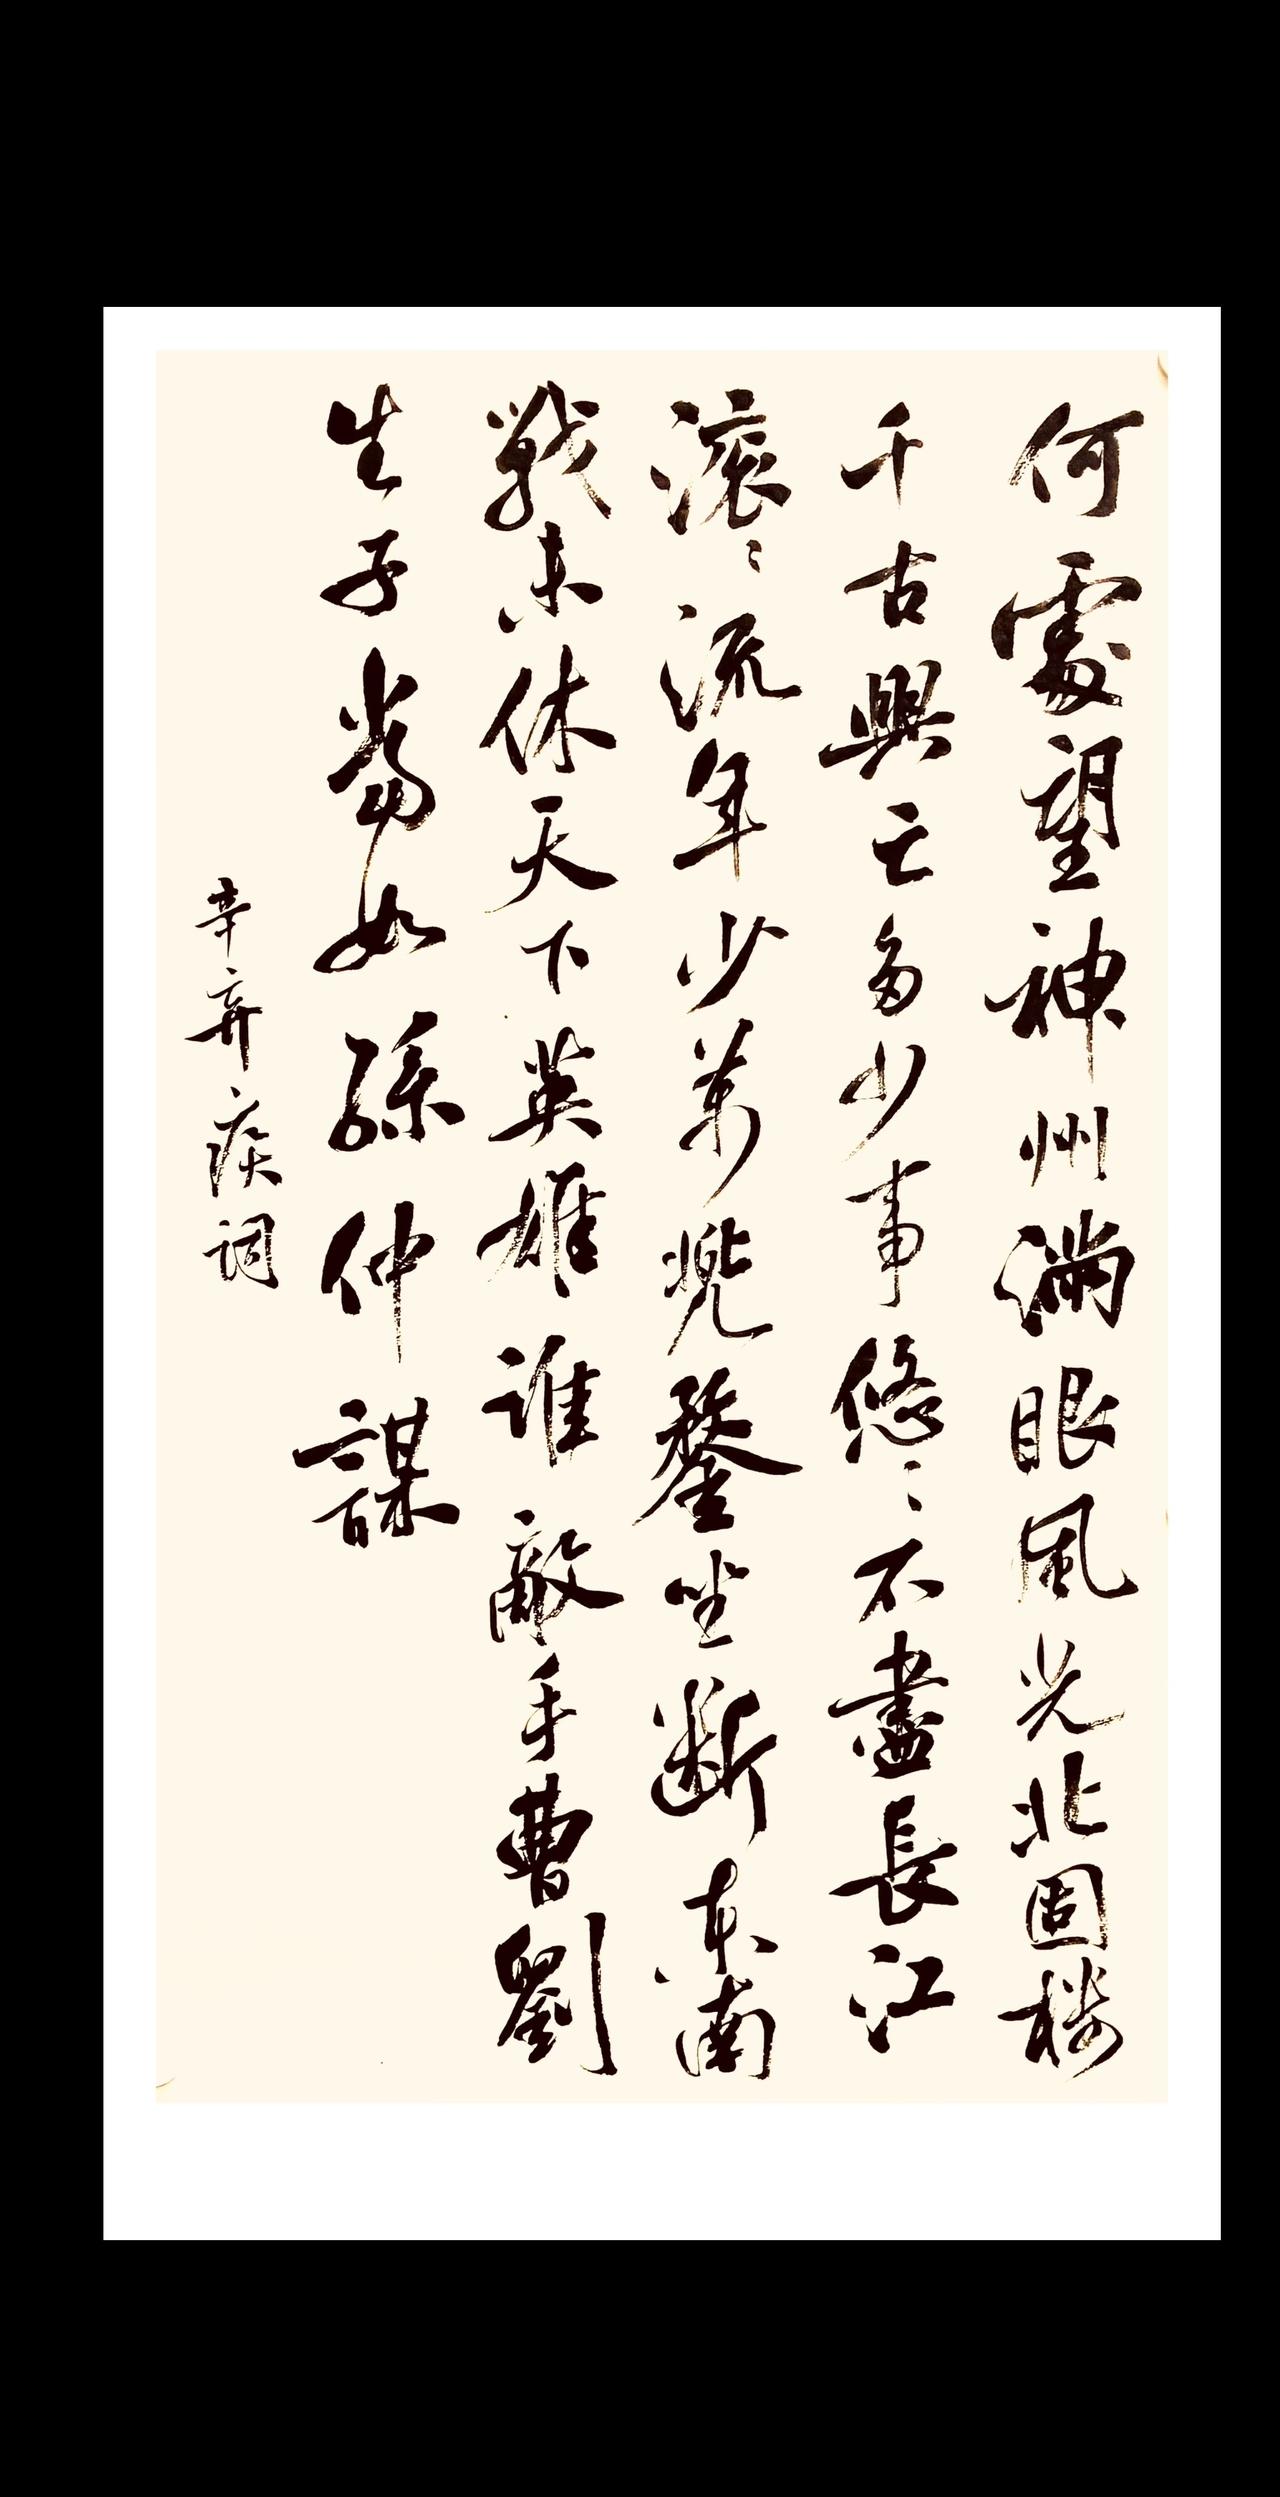 何處望神州滿眼風光北固樓
千古興亡多少事悠〻不盡長江
滾〻流年少萬兜鍪坐斷東南
戰未休天下英雄誰敵手曹劉
生子當如孫仲謀
辛弃疾詞